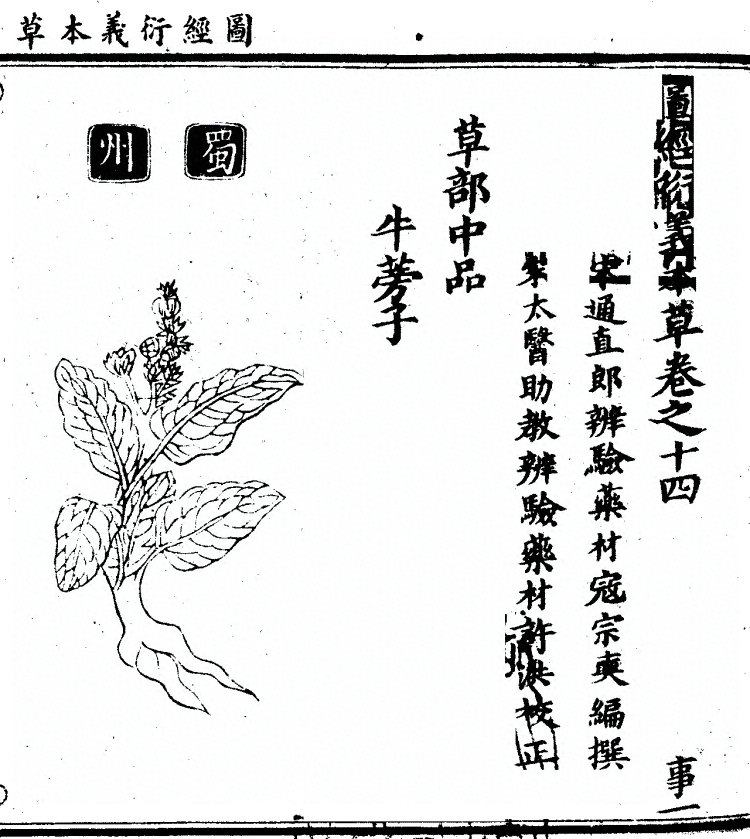 圖經衍義本草
圖經衍義本草卷之十四
事一
宋通直郎辨驗藥材寇宗奭編撰
宋太醫助教辨驗藥材許洪校正
草部中品
牛蒡子
蜀州